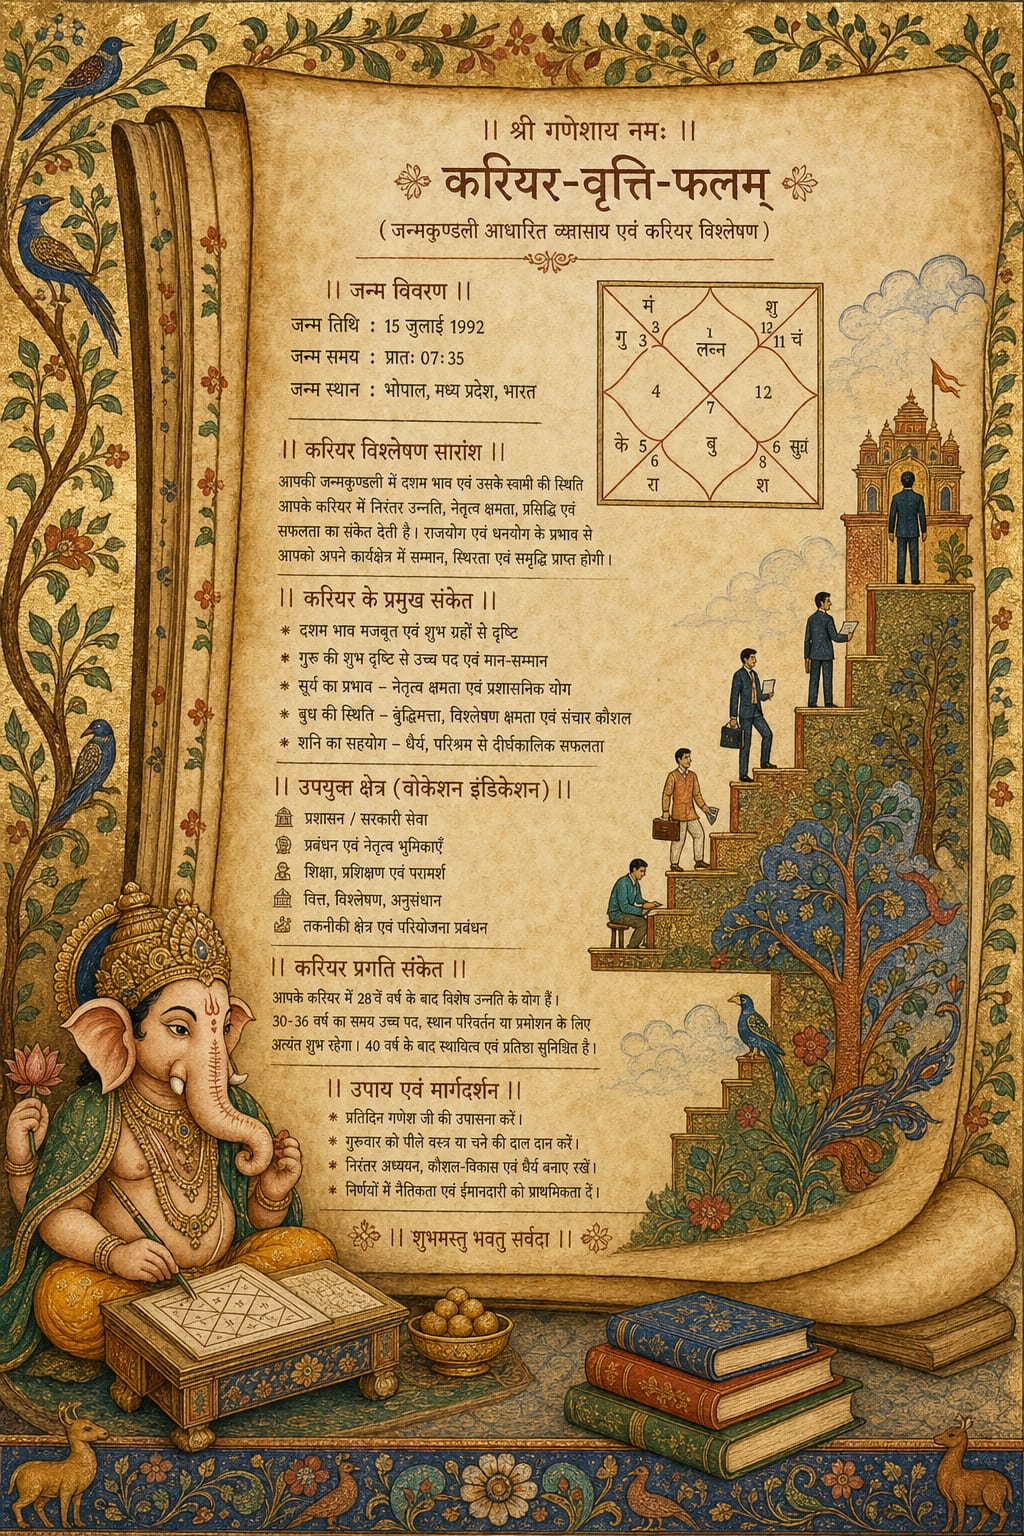 || श्री गणेशाय नमः ||
करियर-वृत्ति-फलम्
(जन्मकुण्डली आधारित एवं करियर विश्लेषण)
|| जन्म विवरण ||
जन्म तिथि : 15 जुलाई 1992
जन्म समय : प्रातः 07:35
जन्म स्थान : भोपाल, मध्य प्रदेश, भारत
मं
शु
3
1
12
गु 3
लग्न
11 चं
4
12
7
के 5
बु
6
6
8
रा
श
|| करियर विश्लेषण सारांश ||
आपकी जन्मकुण्डली में दशम भाव एवं उसके स्वामी की स्थिति
आपके करियर में निरंतर उन्नति, नेतृत्व क्षमता, प्रसिद्धि एवं
सफलता का संकेत देती है। राजयोग एवं धनयोग के प्रभाव से
आपको अपने कार्यक्षेत्र में सम्मान, स्थिरता एवं समृद्धि प्राप्त होगी।
|| करियर के प्रमुख संकेत ||
* दशम भाव मजबूत एवं शुभ ग्रहों से दृष्टि
* गुरु की शुभ दृष्टि से उच्च पद एवं मान-सम्मान
* सूर्य का प्रभाव – नेतृत्व क्षमता एवं प्रशासनिक योग
* बुध की स्थिति – बुंद्धिमत्ता, विश्लेषण क्षमता एवं संचार कौशल
* शनि का सहयोग – धैर्य, परिश्रम से दीर्घकालिक सफलता
|| उपयुक्त क्षेत्र (वोकेशन इंडिकेशन) ||
प्रशासन / सरकारी सेवा
प्रबंधन एवं नेतृत्व भूमिकाएँ
शिक्षा, प्रशिक्षण एवं परामर्श
वित्त, विश्लेषण, अनुसंधान
तकनीकी क्षेत्र एवं परियोजना प्रबंधन
|| करियर प्रगति संकेत ||
आपके करियर में 28वें वर्ष के बाद विशेष उन्नति के योग हैं।
30-36 वर्ष का समय उच्च पद, स्थान परिवर्तन या प्रमोशन के लिए
अत्यंत शुभ रहेगा। 40 वर्ष के बाद स्थायित्व एवं प्रतिष्ठा सुनिश्चित है।
|| उपाय एवं मार्गदर्शन ||
* प्रतिदिन गणेश जी की उपासना करें।
* गुरुवार को पीले वस्त्र या चने की दाल दान करें।
* निरंतर अध्ययन, कौशल-विकास एवं धैर्य बनाए रखें।
* निर्णयों में नैतिकता एवं ईमानदारी को प्राथमिकता दें।
|| शुभमस्तु भवतु सर्वदा ||